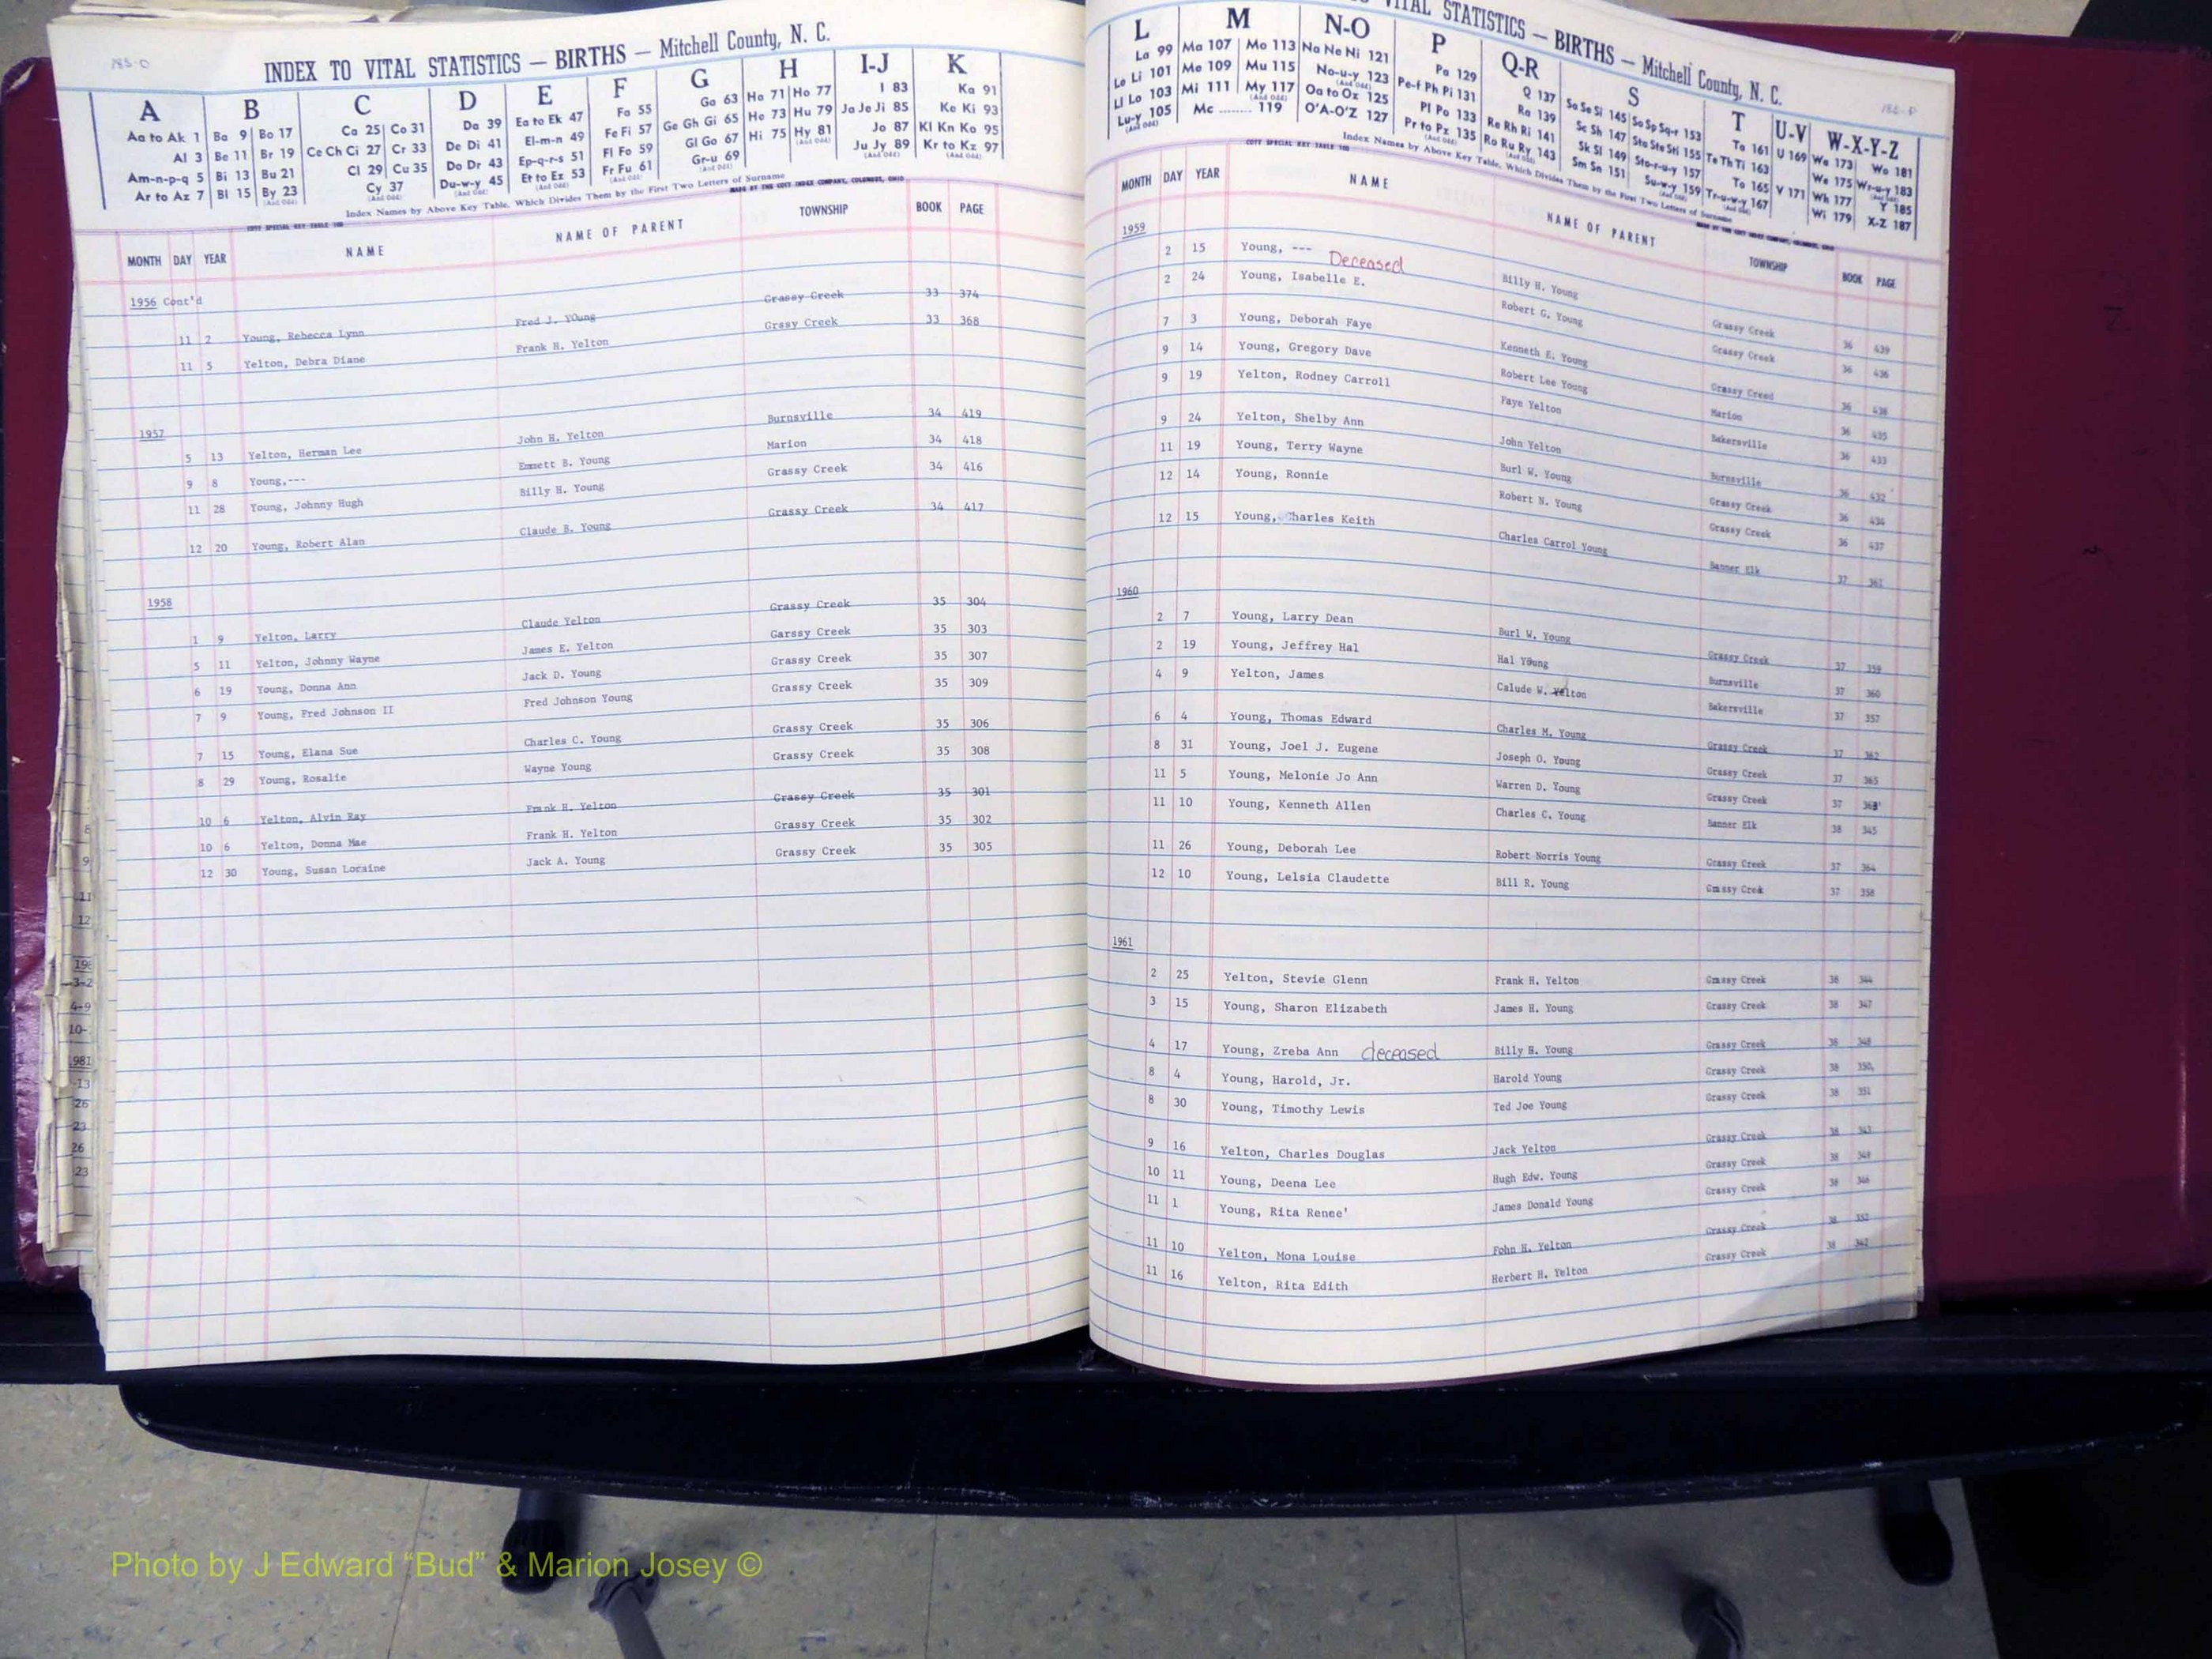 185-O
INDEX TO VITAL STATISTICS — BIRTHS — Mitchell County, N. C.
A B C D E F G H I-J K
Aa to Ak 1 Ba 9 Bo 17 Ca 25 Co 31 Da 39 Ea to Ek 47 Fa 55 Ga 63 Ha 71 Ho 77 I 83 Ka 91
Al 3 Be 11 Br 19 Ce Ch Ci 27 Cr 33 De Di 41 El-m-n 49 Fe Fi 57 Ge Gh Gi 65 He 73 Hu 79 Ja Je Ji 85 Ke Ki 93
Am-n-p-q 5 Bi 13 Bu 21 Cl 29 Cu 35 Do Dr 43 Ep-q-r-s 51 Fl Fo 59 Gl Go 67 Hi 75 Hy 81 (And Odd) Jo 87 Kl Kn Ko 95
Ar to Az 7 Bl 15 By 23 (And Odd) Cy 37 (And Odd) Du-w-y 45 (And Odd) Et to Ez 53 (And Odd) Fr Fu 61 (And Odd) Gr-u 69 (And Odd) Ju Jy 89 (And Odd) Kr to Kz 97 (And Odd)
Index Names by Above Key Table, Which Divides Them by the First Two Letters of Surname
COTT SPECIAL KEY TABLE 100 MADE BY THE COTT INDEX COMPANY, COLUMBUS, OHIO
MONTH DAY YEAR NAME NAME OF PARENT TOWNSHIP BOOK PAGE
1956 Cont'd
11 2 Young, Rebecca Lynn Fred J. YOung Grassy Creek 33 374
11 5 Yelton, Debra Diane Frank H. Yelton Grssy Creek 33 368
1957
5 13 Yelton, Herman Lee John H. Yelton Burnsville 34 419
9 8 Young,--- Emmett B. Young Marion 34 418
11 28 Young, Johnny Hugh Billy H. Young Grassy Creek 34 416
12 20 Young, Robert Alan Claude B. Young Grassy Creek 34 417
1958
1 9 Yelton, Larry Claude Yelton Grassy Creek 35 304
5 11 Yelton, Johnny Wayne James E. Yelton Garssy Creek 35 303
6 19 Young, Donna Ann Jack D. Young Grassy Creek 35 307
7 9 Young, Fred Johnson II Fred Johnson Young Grassy Creek 35 309
7 15 Young, Elana Sue Charles C. Young Grassy Creek 35 306
8 29 Young, Rosalie Wayne Young Grassy Creek 35 308
10 6 Yelton, Alvin Ray Frank H. Yelton Grassy Creek 35 301
10 6 Yelton, Donna Mae Frank H. Yelton Grassy Creek 35 302
12 30 Young, Susan Loraine Jack A. Young Grassy Creek 35 305
VITAL STATISTICS — BIRTHS — Mitchell County, N. C.
185-P
L M N-O P Q-R S T U-V W-X-Y-Z
La 99 Ma 107 Mo 113 Na Ne Ni 121 Pa 129 Q 137 Sa Se Si 145 So Sp Sq-r 153 Ta 161 U 169 Wa 173 Wo 181
Le Li 101 Me 109 Mu 115 No-u-y 123 (And Odd) Pe-f Ph Pi 131 Ra 139 Sc Sh 147 Sta Ste Sti 155 Te Th Ti 163 We 175 Wr-u-y 183 (And Odd)
Ll Lo 103 Mi 111 My 117 (And Odd) Oa to Oz 125 Pl Po 133 Re Rh Ri 141 Sk Sl 149 Sto-r-u-y 157 To 165 V 171 Wh 177 Y 185
Lu-y 105 (And Odd) Mc 119 O'A-O'Z 127 Pr to Pz 135 (And Odd) Ro Ru Ry 143 (And Odd) Sm Sn 151 Su-w-y 159 (And Odd) Tr-u-w-y 167 (And Odd) Wi 179 X-Z 187
COTT SPECIAL KEY TABLE 100
Index Names by Above Key Table, Which Divides Them by the First Two Letters of Surname
MADE BY THE COTT INDEX COMPANY, COLUMBUS, OHIO
MONTH DAY YEAR NAME NAME OF PARENT TOWNSHIP BOOK PAGE
1959
2 15 Young, --- Deceased Billy H. Young Grassy Creek 36 439
2 24 Young, Isabelle E. Robert G. Young Grassy Creek 36 436
7 3 Young, Deborah Faye Kenneth E. Young Grassy Creed 36 438
9 14 Young, Gregory Dave Robert Lee Young Marion 36 435
9 19 Yelton, Rodney Carroll Faye Yelton Bakersville 36 433
9 24 Yelton, Shelby Ann John Yelton Burnsville 36 432
11 19 Young, Terry Wayne Burl W. Young Grassy Creek 36 434
12 14 Young, Ronnie Robert N. Young Grassy Creek 36 437
12 15 Young, Charles Keith Charles Carrol Young Banner Elk 37 361
1960
2 7 Young, Larry Dean Burl W. Young Grassy Creek 37 359
2 19 Young, Jeffrey Hal Hal Young Burnsville 37 360
4 9 Yelton, James Calude W. Yelton Bakersville 37 357
6 4 Young, Thomas Edward Charles M. Young Grassy Creek 37 362
8 31 Young, Joel J. Eugene Joseph O. Young Grassy Creek 37 365
11 5 Young, Melonie Jo Ann Warren D. Young Grassy Creek 37 363
11 10 Young, Kenneth Allen Charles C. Young Banner Elk 38 345
11 26 Young, Deborah Lee Robert Norris Young Grassy Creek 37 364
12 10 Young, Lelsia Claudette Bill R. Young Grassy Creek 37 358
1961
2 25 Yelton, Stevie Glenn Frank H. Yelton Grassy Creek 38 344
3 15 Young, Sharon Elizabeth James H. Young Grassy Creek 38 347
4 17 Young, Zreba Ann deceased Billy H. Young Grassy Creek 38 348
8 4 Young, Harold, Jr. Harold Young Grassy Creek 38 350
8 30 Young, Timothy Lewis Ted Joe Young Grassy Creek 38 351
9 16 Yelton, Charles Douglas Jack Yelton Grassy Creek 38 343
10 11 Young, Deena Lee Hugh Edw. Young Grassy Creek 38 349
11 1 Young, Rita Renee' James Donald Young Grassy Creek 38 346
11 10 Yelton, Mona Louise Fohn H. Yelton Grassy Creek 38 352
11 16 Yelton, Rita Edith Herbert H. Yelton Grassy Creek 38 342
Photo by J Edward “Bud” & Marion Josey ©